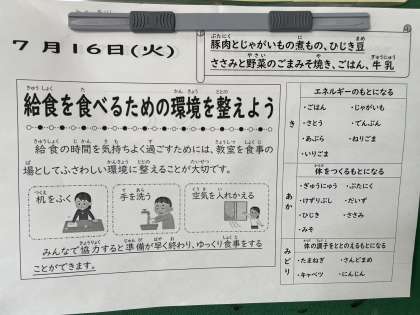 7月16日(火)
豚肉とじゃがいもの煮もの、ひじき豆
ささみと野菜のごまみそ焼き、ごはん、牛乳
給食を食べるための環境を整えよう
給食の時間を気持ちよく過ごすためには、教室を食事の
場としてふさわしい環境に整えることが大切です。
机をふく
手を洗う
空気を入れかえる
みんなで協力すると準備が早く終わり、ゆっくり食事をする
ことができます。
エネルギーのもとになる
き
・ごはん ・じゃがいも
・さとう ・でんぷん
・あぶら ・ねりごま
・いりごま
体をつくるもとになる
あか
・ぎゅうにゅう ・ぶたにく
・けずりぶし ・だいず
・ひじき ・ささみ
・みそ
体の調子をととのえるもとになる
みどり
・たまねぎ ・さんどまめ
・キャベツ ・にんじん